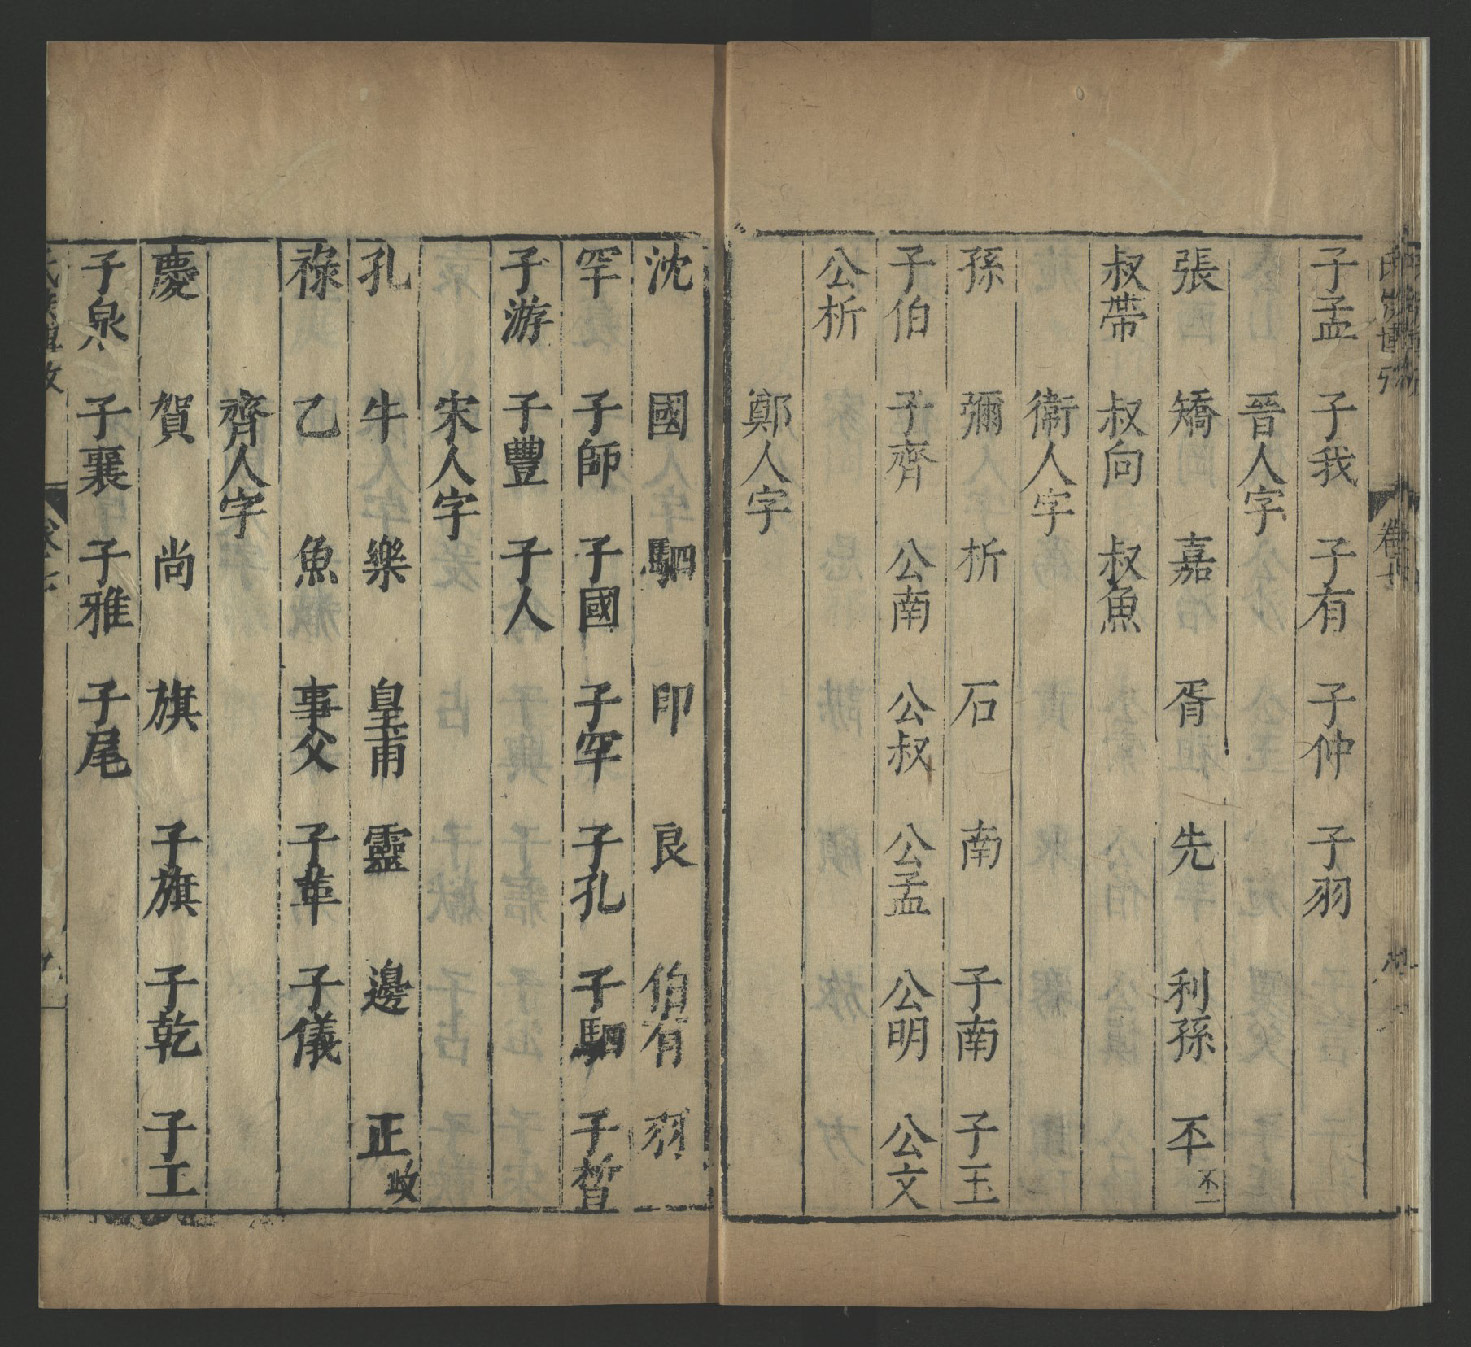 子孟 子我 子有 子仲 子羽
晉人字
張 矯 嘉 胥 先 利孫 不 不一
叔帶 叔向 叔魚
衞人字
孫 彌 析 石 南 子南 子玉
子伯 子齊 公南 公叔 公孟 公明 公文
公析
鄭人字
沈 國 駟 印 良 伯有 羽
罕 子師 子國 子罕 子孔 子駟 子晳
子游 子豐 子人
宋人字
孔 牛 樂 皇甫 靈 邊 正 攻
祿 乙 魚 事父 子革 子儀
齊人字
慶 賀 尚 旗 子旗 子乾 子工
子泉 子襄 子雅 子尾